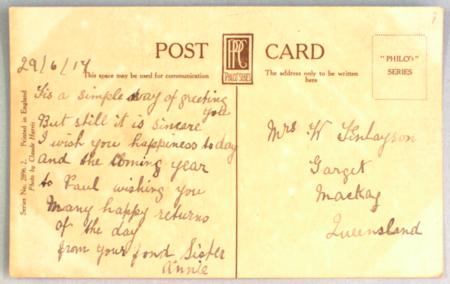 29/6/17
POST CARD
PPC
PHILCO SERIES
This space may be used for communication
The address only to be written
here
"PHILCO"
SERIES
Series No. 2896. 2. Printed in England
Photo by Claude Harris
Tis a simple way of greeting
you
But still it is sincere
I wish you happiness today
and the Coming year
to Paul wishing you
Many happy returns
of the day
from your fond Sister
Annie
Mrs W Finlayson
Garget
Mackay
Queensland